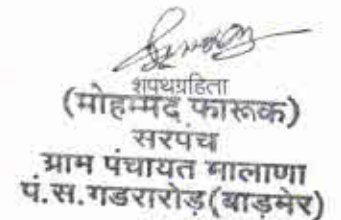 शपथग्रहिता
(मोहम्मद फारूक)
सरपंच
ग्राम पंचायत मालाणा
पं.स.गडरारोड़(बाड़मेर)